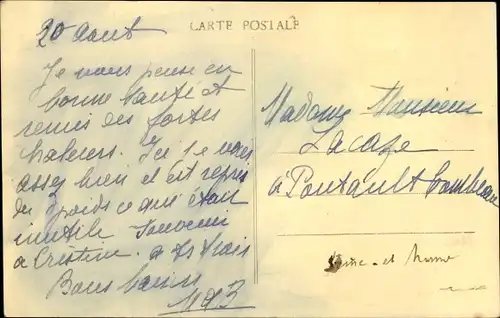 CARTE POSTALE
20 Aout
Je vous pense en
bonne santé et
remis des fortes
chaleurs. Ici je vais
assez bien et est repris
du poids ce qui était
inutile Souvenir
à Cristine.
Bons baisers
Madame Monsieur
Lacaze
à Pontault Combeau
Seine et Marne